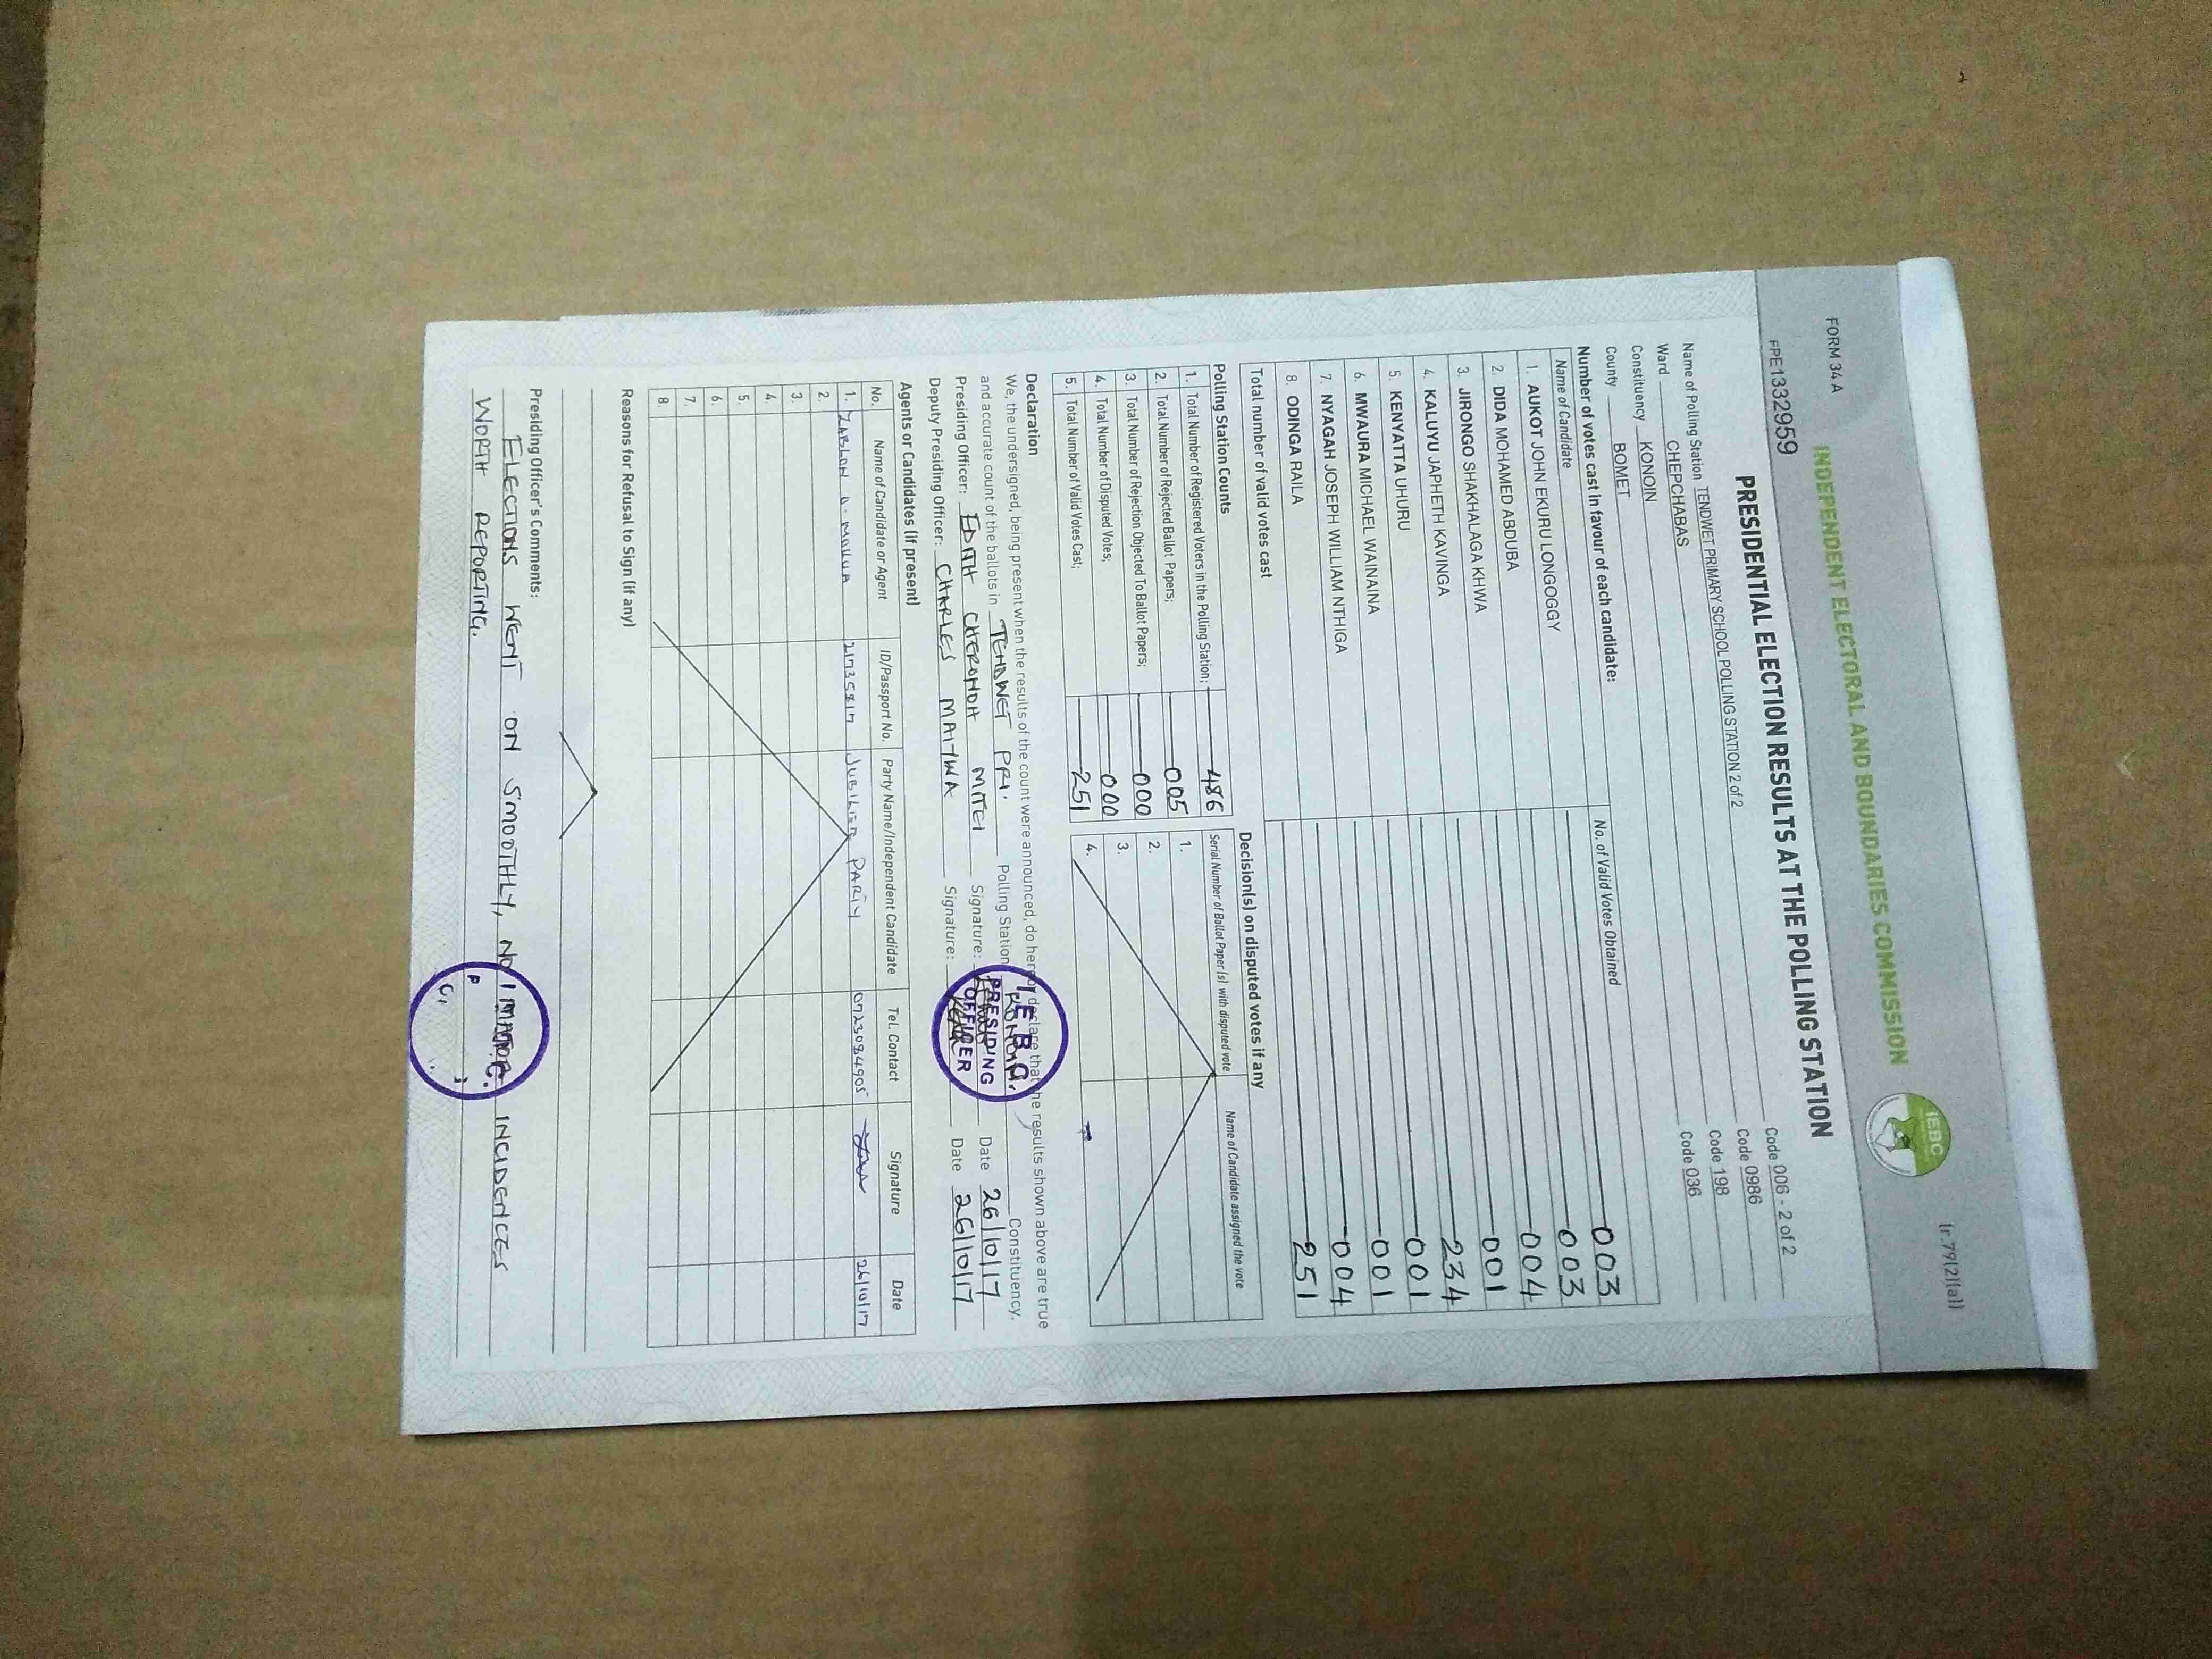 FORM 34 A
(r.79(2)(a))
INDEPENDENT ELECTORAL AND BOUNDARIES COMMISSION
IEBC
FPE1332959
PRESIDENTIAL ELECTION RESULTS AT THE POLLING STATION
Name of Polling Station TENDWET PRIMARY SCHOOL POLLING STATION 2 of 2 Code 006 - 2 of 2
Ward CHEPCHABAS Code 0986
Constituency KONOIN Code 198
County BOMET Code 036
Number of votes cast in favour of each candidate:
Name of Candidate No. of Valid Votes Obtained
1. AUKOT JOHN EKURU LONGOGGY 003
2. DIDA MOHAMED ABDUBA 003
3. JIRONGO SHAKHALAGA KHWA 004
4. KALUYU JAPHETH KAVINGA 001
5. KENYATTA UHURU 234
6. MWAURA MICHAEL WAINAINA 001
7. NYAGAH JOSEPH WILLIAM NTHIGA 001
8. ODINGA RAILA 004
Total number of valid votes cast 251
Polling Station Counts
1. Total Number of Registered Voters in the Polling Station; 486
2. Total Number of Rejected Ballot Papers; 005
3. Total Number of Rejection Objected To Ballot Papers; 000
4. Total Number of Disputed Votes; 000
5. Total Number of Valid Votes Cast; 251
Decision(s) on disputed votes if any
Serial Number of Ballot Paper (s) with disputed vote Name of Candidate assigned the vote
1.
2.
3.
4.
Declaration
We, the undersigned, being present when the results of the count were announced, do hereby declare that the results shown above are true
and accurate count of the ballots in TENDWET PRI. Polling Station KONOIN Constituency.
Presiding Officer: EDITH CHERONOH MITEI Signature: Date 26/10/17
Deputy Presiding Officer: CHARLES MAITWA Signature: Date 26/10/17
I E B C
PRESIDING
OFFICER
Agents or Candidates (if present)
No. Name of Candidate or Agent ID/Passport No. Party Name/Independent Candidate Tel. Contact Signature Date
1. ZABLON 21735817 JUBILIEE PARTY 0723084905 26/10/17
2.
3.
4.
5.
6.
7.
8.
Reasons for Refusal to Sign (if any)
Presiding Officer's Comments:
ELECTIONS WENT ON SMOOTHLY, NO INCIDENCES
WORTH REPORTING.